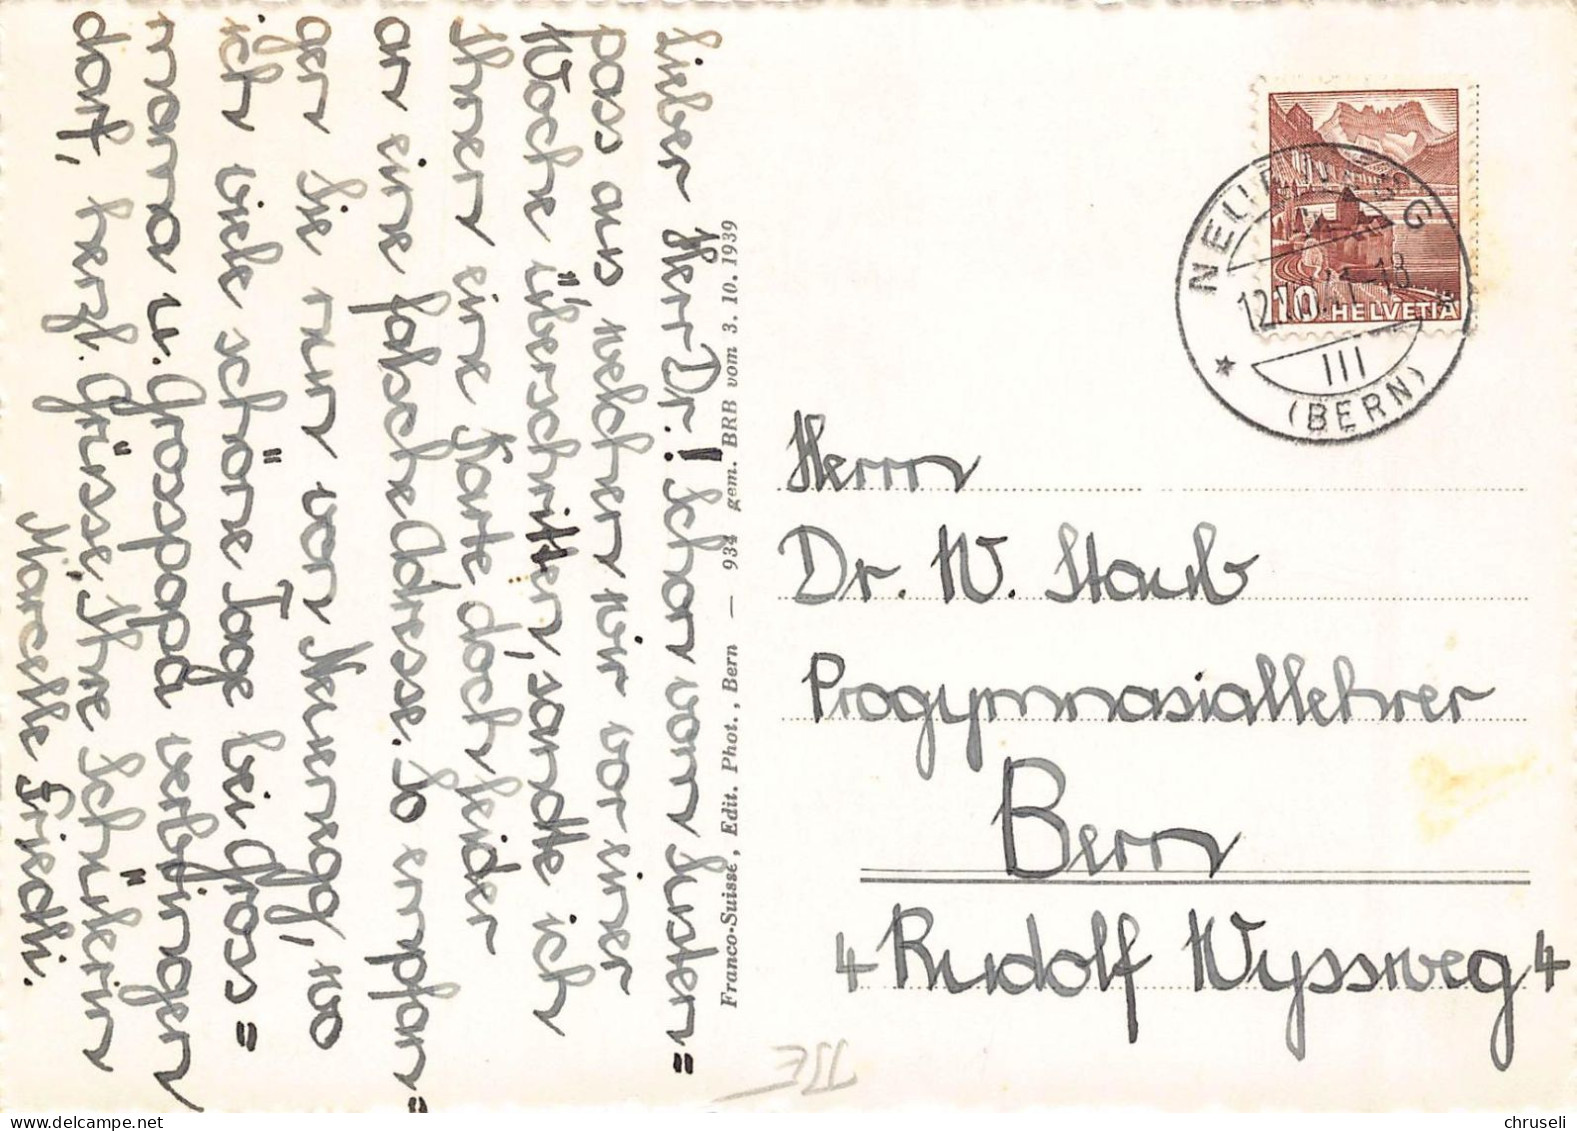 Lieber Herr Dr.! Schon vom Susten=
pass aus, welchen wir vor einer
Woche überschritten, sandte ich
Ihnen eine Karte, doch leider
an eine falsche Adresse. So empfan=
gen Sie nun von Neuenegg, wo
ich viele schöne Tage bei Gross=
mama u. Grosspapa verbringen
darf, herzl. Grüsse, Ihre Schülerin
Marcelle Friedli.
Franco-Suisse, Edit. Phot., Bern — 934 gem. BRB vom 3. 10. 1939
10 HELVETIA
NEUENEGG
(BERN)
III
Herrn
Dr. W. Staub
Progymnasiallehrer
Bern
4 Rudolf Wyssweg 4
chruseli